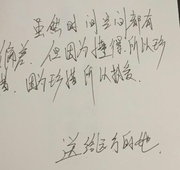 虽然时间空间都有
偏差。但因为懂得,所以珍
惜。因为珍惜所以执爱。
送给远方的她